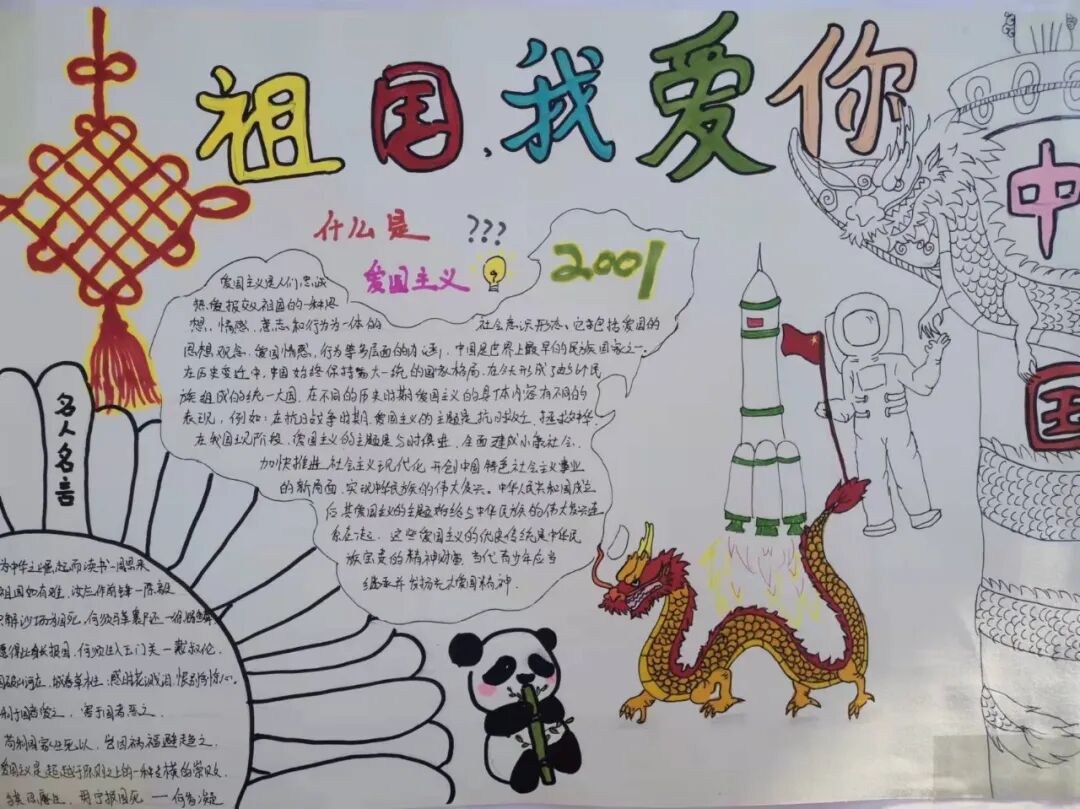 祖国,我爱你
什么是 ???
爱国主义
2001
中
国
爱国主义是人们忠诚
热爱报效祖国的一种思
想,情感,意志和行为为一体的 社会意识形态。它包括爱国的
思想观念,爱国情感,行为等多层面的
中国是世界上最早的民族国家之一。
在历史变迁中,中国始终保持着大一统的国家格局,在今天形成了由56个民
族组成的统一大国。在不同的历史时期爱国主义的具体内容有不同的
表现,例如:在抗日战争时期,爱国主义的主题是抗日救亡、拯救中华。
在我国现阶段,爱国主义的主题是与时俱进、全面建成小康社会、
加快推进社会主义现代化,开创中国特色社会主义事业
的新局面,实现中华民族的伟大复兴。中华人民共和国成立
后其爱国主义的主题始终与中华民族的伟大复兴连
系在一起。这些爱国主义的优良传统是中华民
族宝贵的精神财富,当代青少年应当
继承并发扬光大爱国精神。
名人名言
为中华之崛起而读书—周恩来
祖国如有难,汝应作前锋—陈毅
只解沙场为国死,何须马革裹尸还—徐锡麟
愿得此身长报国,何须生入玉门关—戴叔伦
国破山河在,城春草木生;感时花溅泪,恨别鸟惊心。
利于国者爱之,害于国者恶之。
苟利国家生死以,岂因祸福避趋之。
爱国主义是超越于
之上的一种
的崇敬
报国死—何